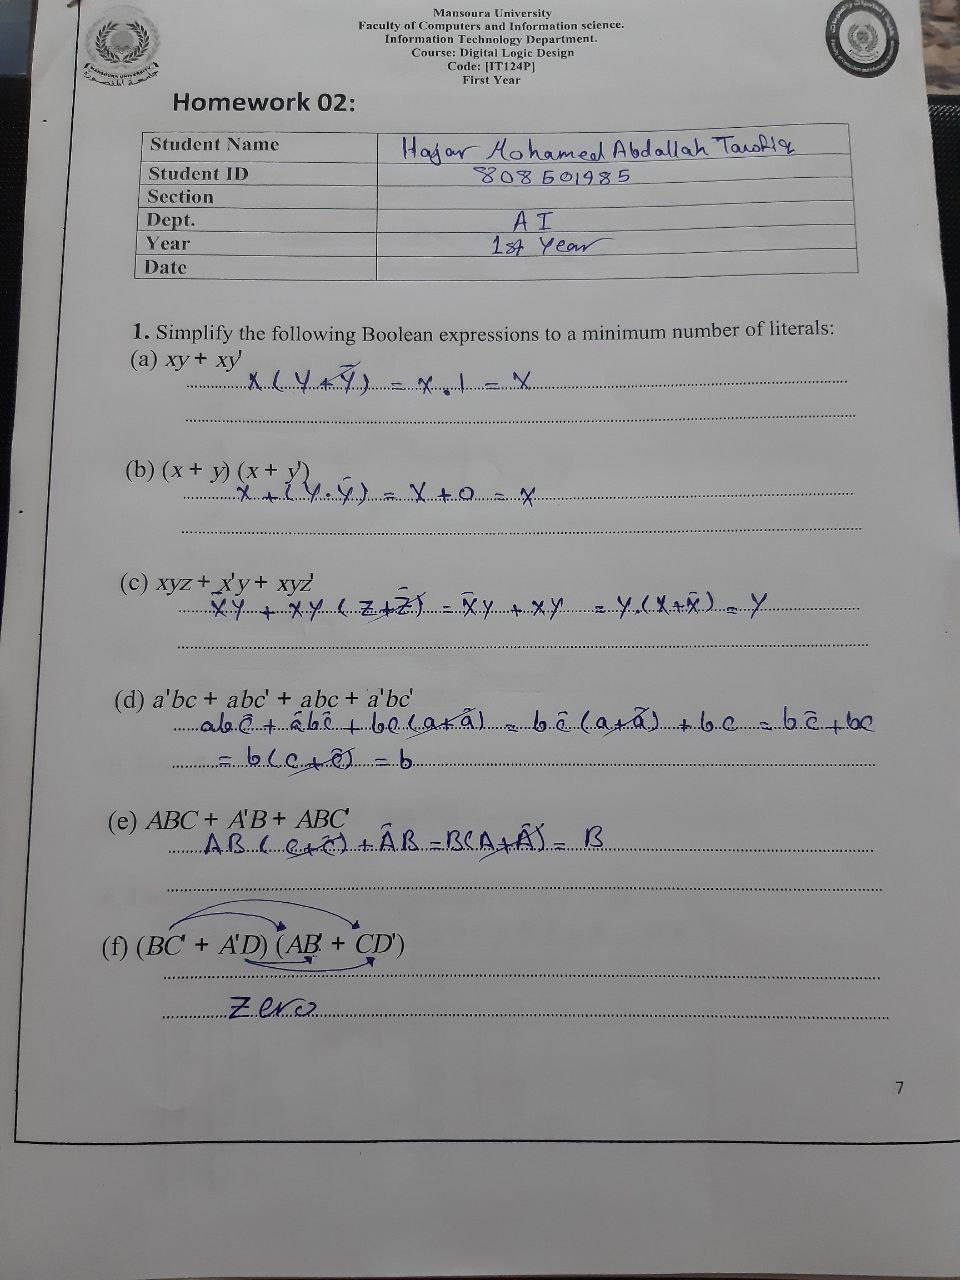 Mansoura University
Faculty of Computers and Information science.
Information Technology Department.
Course: Digital Logic Design
Code: [IT124P]
First Year
MANSOURA UNIVERSITY
Homework 02:
Student Name Hajar Mohamed Abdallah Tawfiq
Student ID 808501985
Section
Dept. AI
Year 1st Year
Date
1. Simplify the following Boolean expressions to a minimum number of literals:
(a) xy + xy'
x(y+ȳ) = x.1 = x
(b) (x + y) (x + y')
x+(y.ȳ) = x+0 = x
(c) xyz + x'y + xyz'
x̄y + xy(z+z̄) = x̄y + xy = y.(x+x̄) = y
(d) a'bc + abc' + abc + a'bc'
abc̄ + ābc̄ + bc(a+ā) = bc̄(a+ā) + bc = bc̄+bc
= b(c+c̄) = b
(e) ABC + A'B + ABC'
AB(c+c̄) + ĀB = B(A+Ā) = B
(f) (BC' + A'D) (AB' + CD')
Zero
7